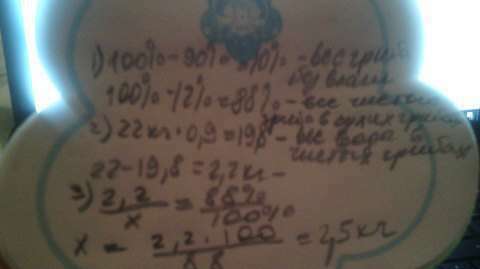 1) 100% - 90% = 10% - вес гриба
без влаги
100% - 12% = 88% - вес чистых
грибов в сухих грибах
2) 22 кг · 0,9 = 19,8 - вес вода в
чистых грибах
22 - 19,8 = 2,2 кг -
3) 2,2 / x = 88% / 100%
x = 2,2 · 100 / 88 = 2,5 кг